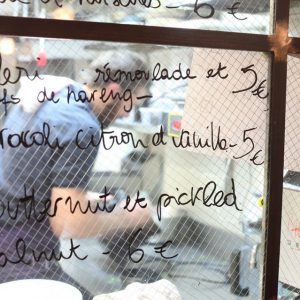 6 €
leri rémoulade et 5€
fs de hareng -
rocoli citron et vanilla - 5€
utternut et pickled
alnut - 6 €